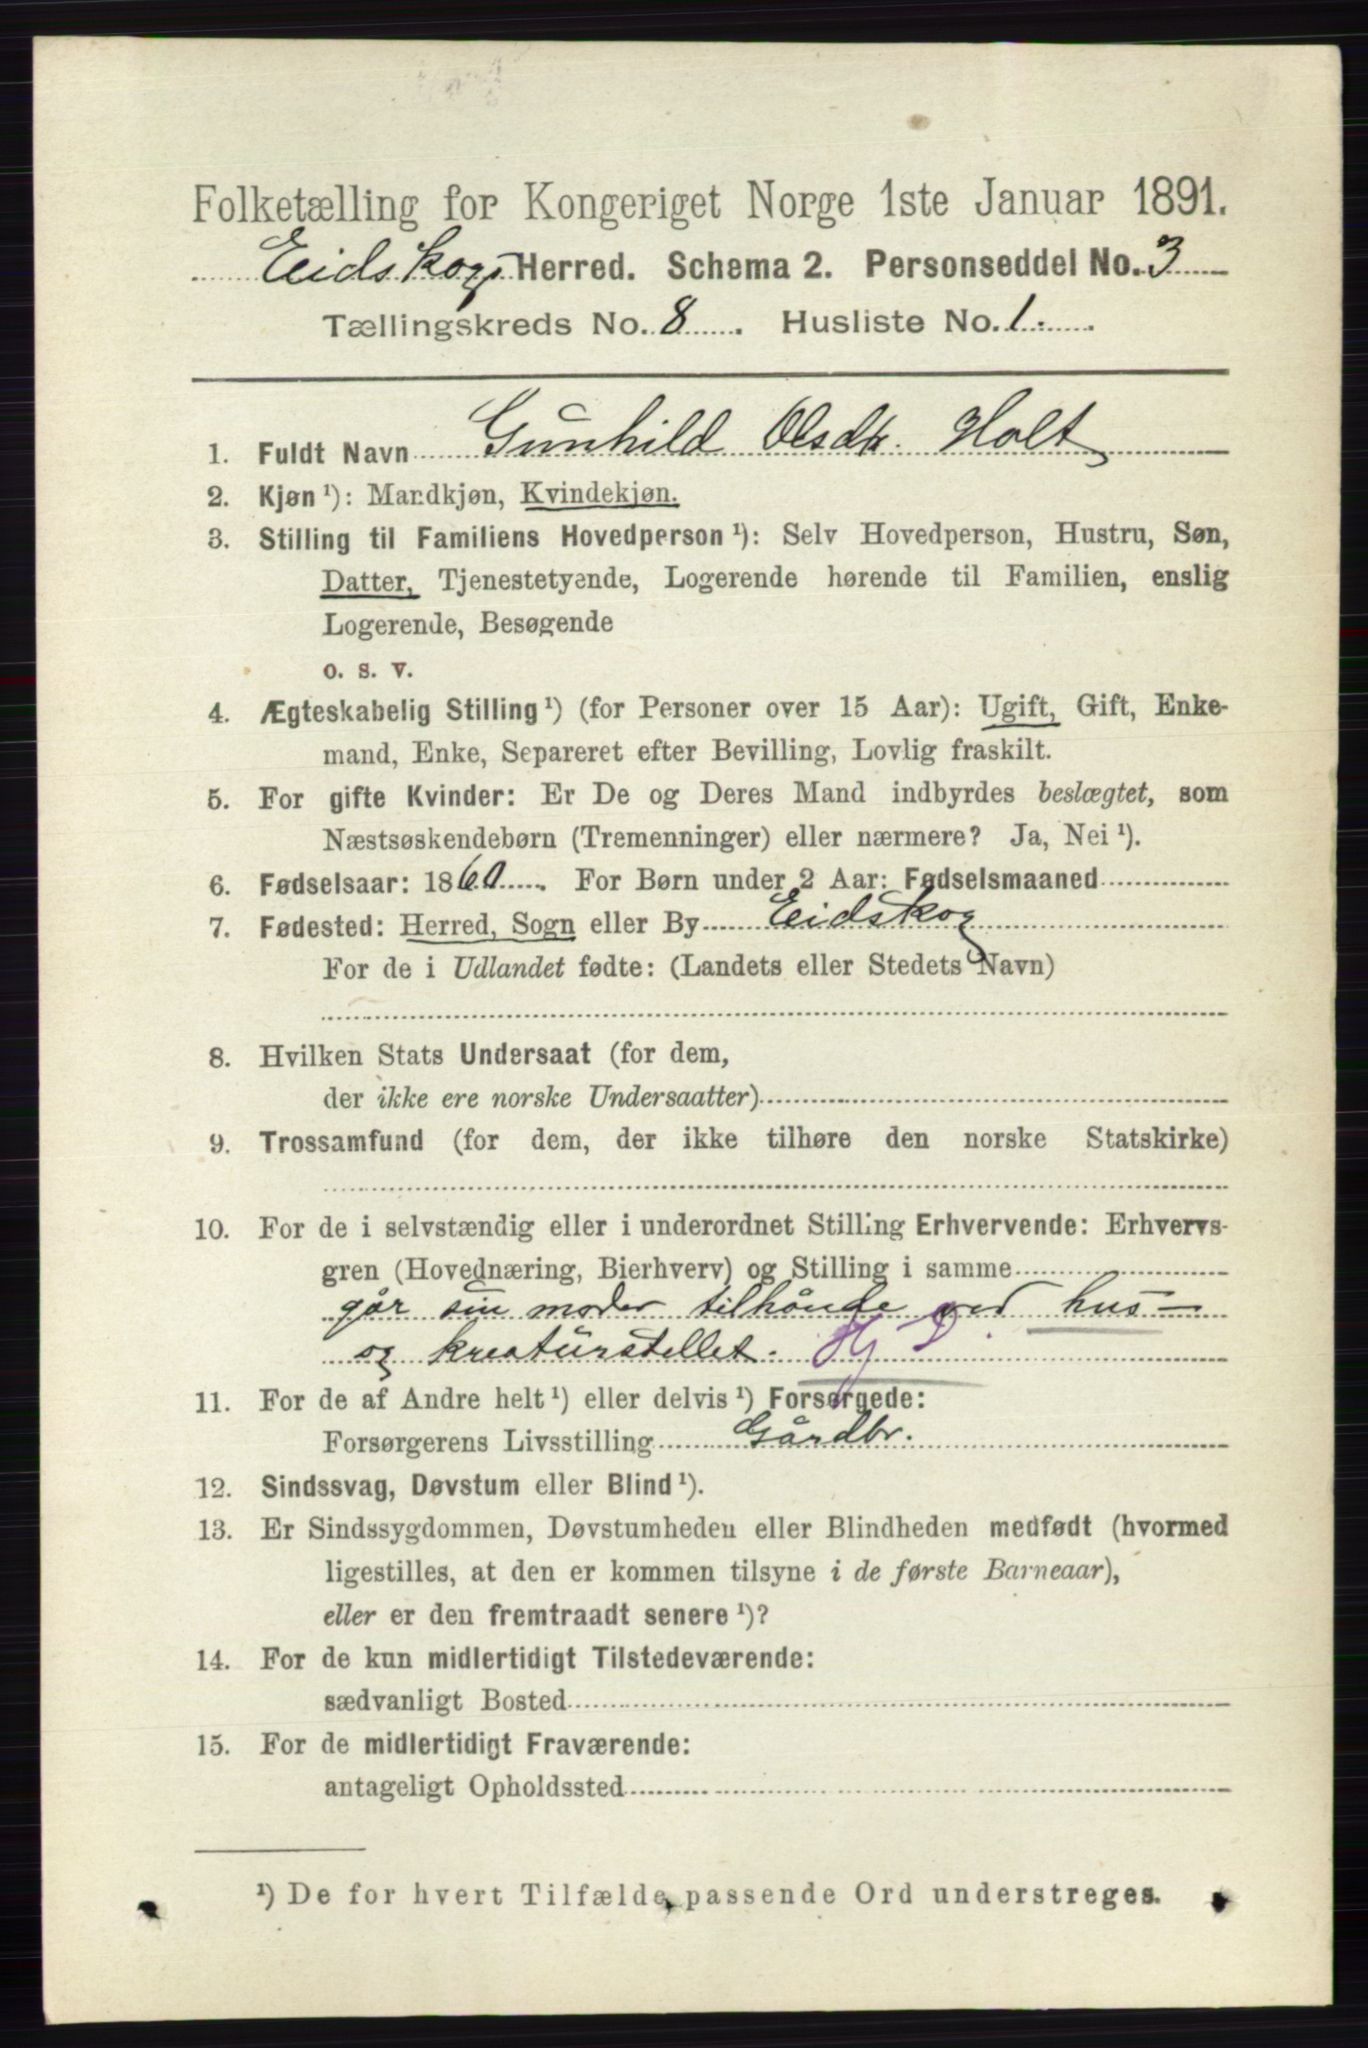 Folketælling for Kongeriget Norge 1ste Januar 1891.
Eidskogs Herred. Schema 2. Personseddel No. 3
Tællingskreds No. 8 . Husliste No. 1.
1. Fuldt Navn Gunhild Olsdtr. Holt
2. Kjøn ¹): Mandkjøn, Kvindekjøn.
3. Stilling til Familiens Hovedperson ¹): Selv Hovedperson, Hustru, Søn,
Datter, Tjenestetyende, Logerende hørende til Familien, enslig
Logerende, Besøgende
o. s. v.
4. Ægteskabelig Stilling ¹) (for Personer over 15 Aar): Ugift, Gift, Enke-
mand, Enke, Separeret efter Bevilling, Lovlig fraskilt.
5. For gifte Kvinder: Er De og Deres Mand indbyrdes beslægtet, som
Næstsøskendebørn (Tremenninger) eller nærmere? Ja, Nei ¹).
6. Fødselsaar: 1860. For Børn under 2 Aar: Fødselsmaaned
7. Fødested: Herred, Sogn eller By Eidskog
For de i Udlandet fødte: (Landets eller Stedets Navn)
8. Hvilken Stats Undersaat (for dem,
der ikke ere norske Undersaatter)
9. Trossamfund (for dem, der ikke tilhøre den norske Statskirke)
10. For de i selvstændig eller i underordnet Stilling Erhvervende: Erhvervs-
gren (Hovednæring, Bierhverv) og Stilling i samme
går sin moder tilhånde ved hus-
og kreaturstellet.
11. For de af Andre helt ¹) eller delvis ¹) Forsørgede:
Forsørgerens Livsstilling Gårdbr.
12. Sindssvag, Døvstum eller Blind ¹).
13. Er Sindssygdommen, Døvstumheden eller Blindheden medfødt (hvormed
ligestilles, at den er kommen tilsyne i de første Barneaar),
eller er den fremtraadt senere ¹)?
14. For de kun midlertidigt Tilstedeværende:
sædvanligt Bosted
15. For de midlertidigt Fraværende:
antageligt Opholdssted
¹) De for hvert Tilfælde passende Ord understreges.